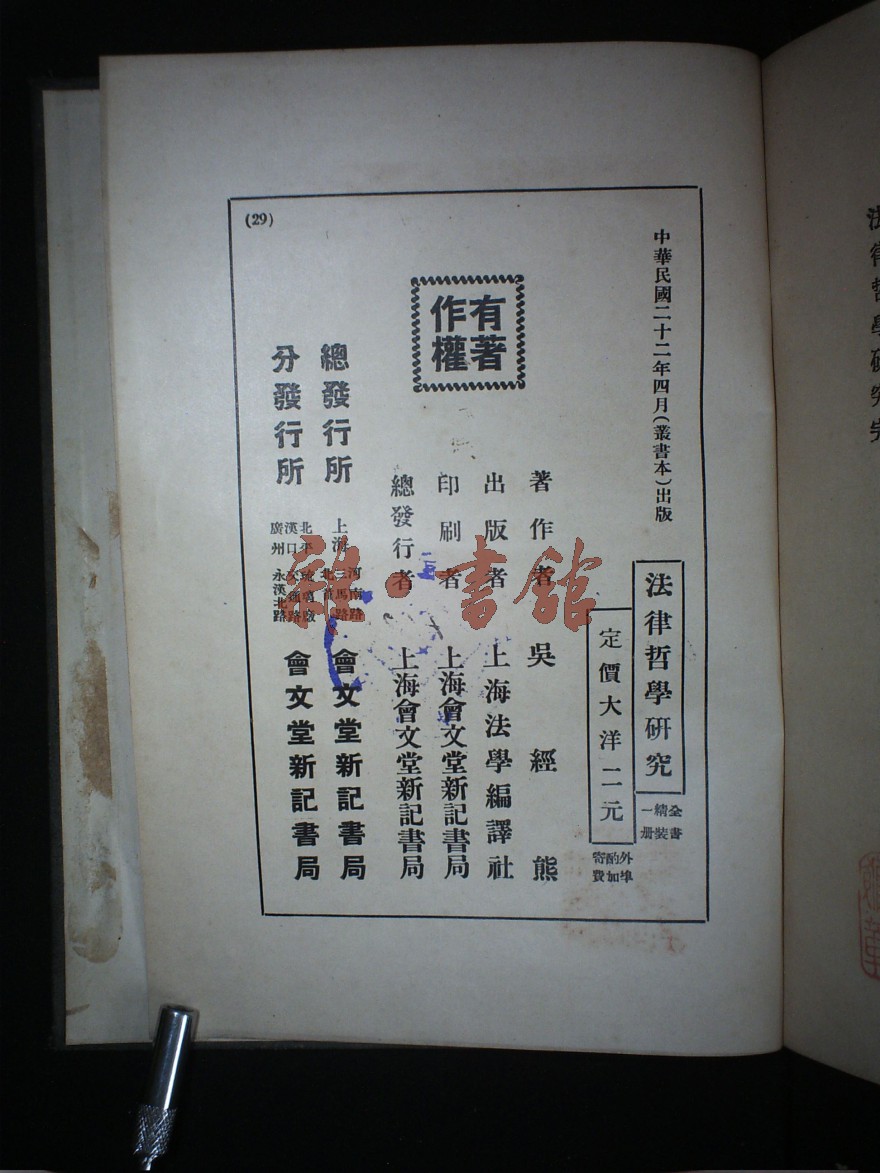 法律哲學研究
中華民國二十二年四月(叢書本)出版
法律哲學研究
全書精裝一册
定價大洋二元
外埠酌加寄費
著作者 吳經熊
出版者 上海法學編譯社
印刷者 上海會文堂新記書局
總發行者 上海會文堂新記書局
有著作權
總發行所 上海 河南路三馬路北首 會文堂新記書局
分發行所 北平琉璃廠 漢口交通路 廣州永漢北路 會文堂新記書局
(29)